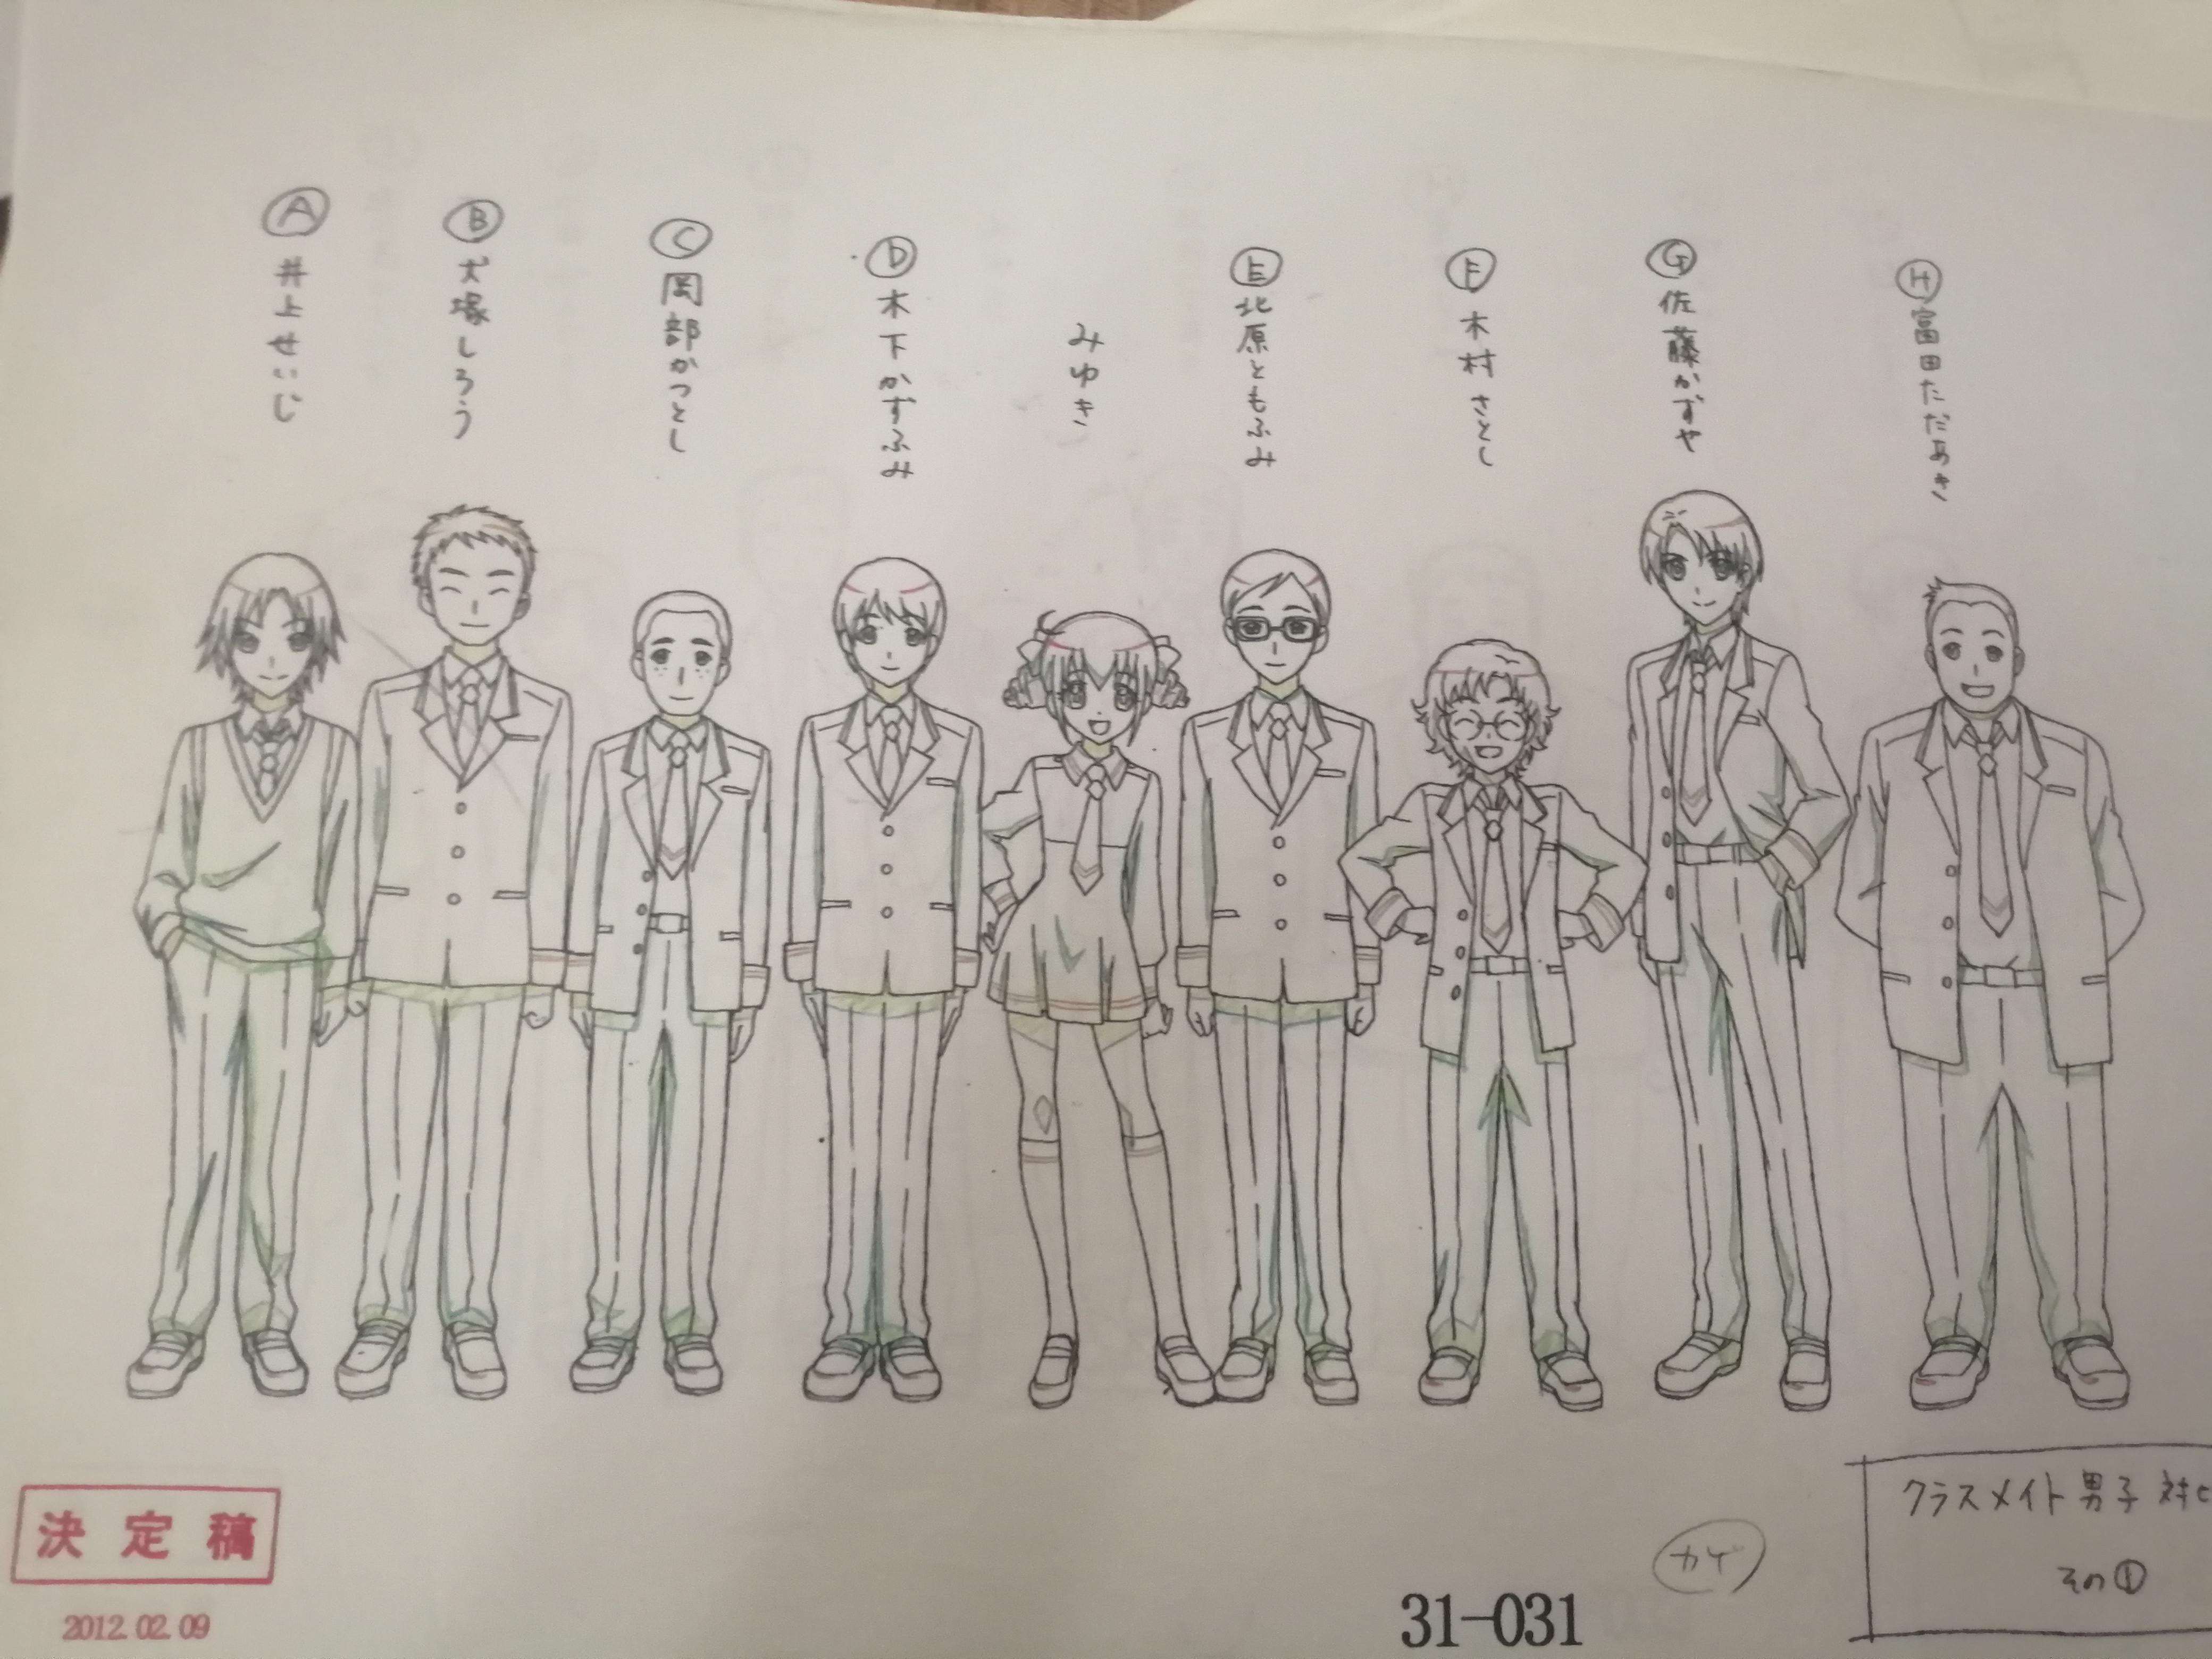 Ⓐ井上せいじ
Ⓑ犬塚しろう
Ⓒ岡部かつとし
Ⓓ木下かずふみ
みゆき
Ⓔ北原ともふみ
Ⓕ木村さとし
Ⓖ佐藤かずや
Ⓗ富田ただあき
決定稿
2012.02.09
31-031
カゲ
クラスメイト男子 対
その①